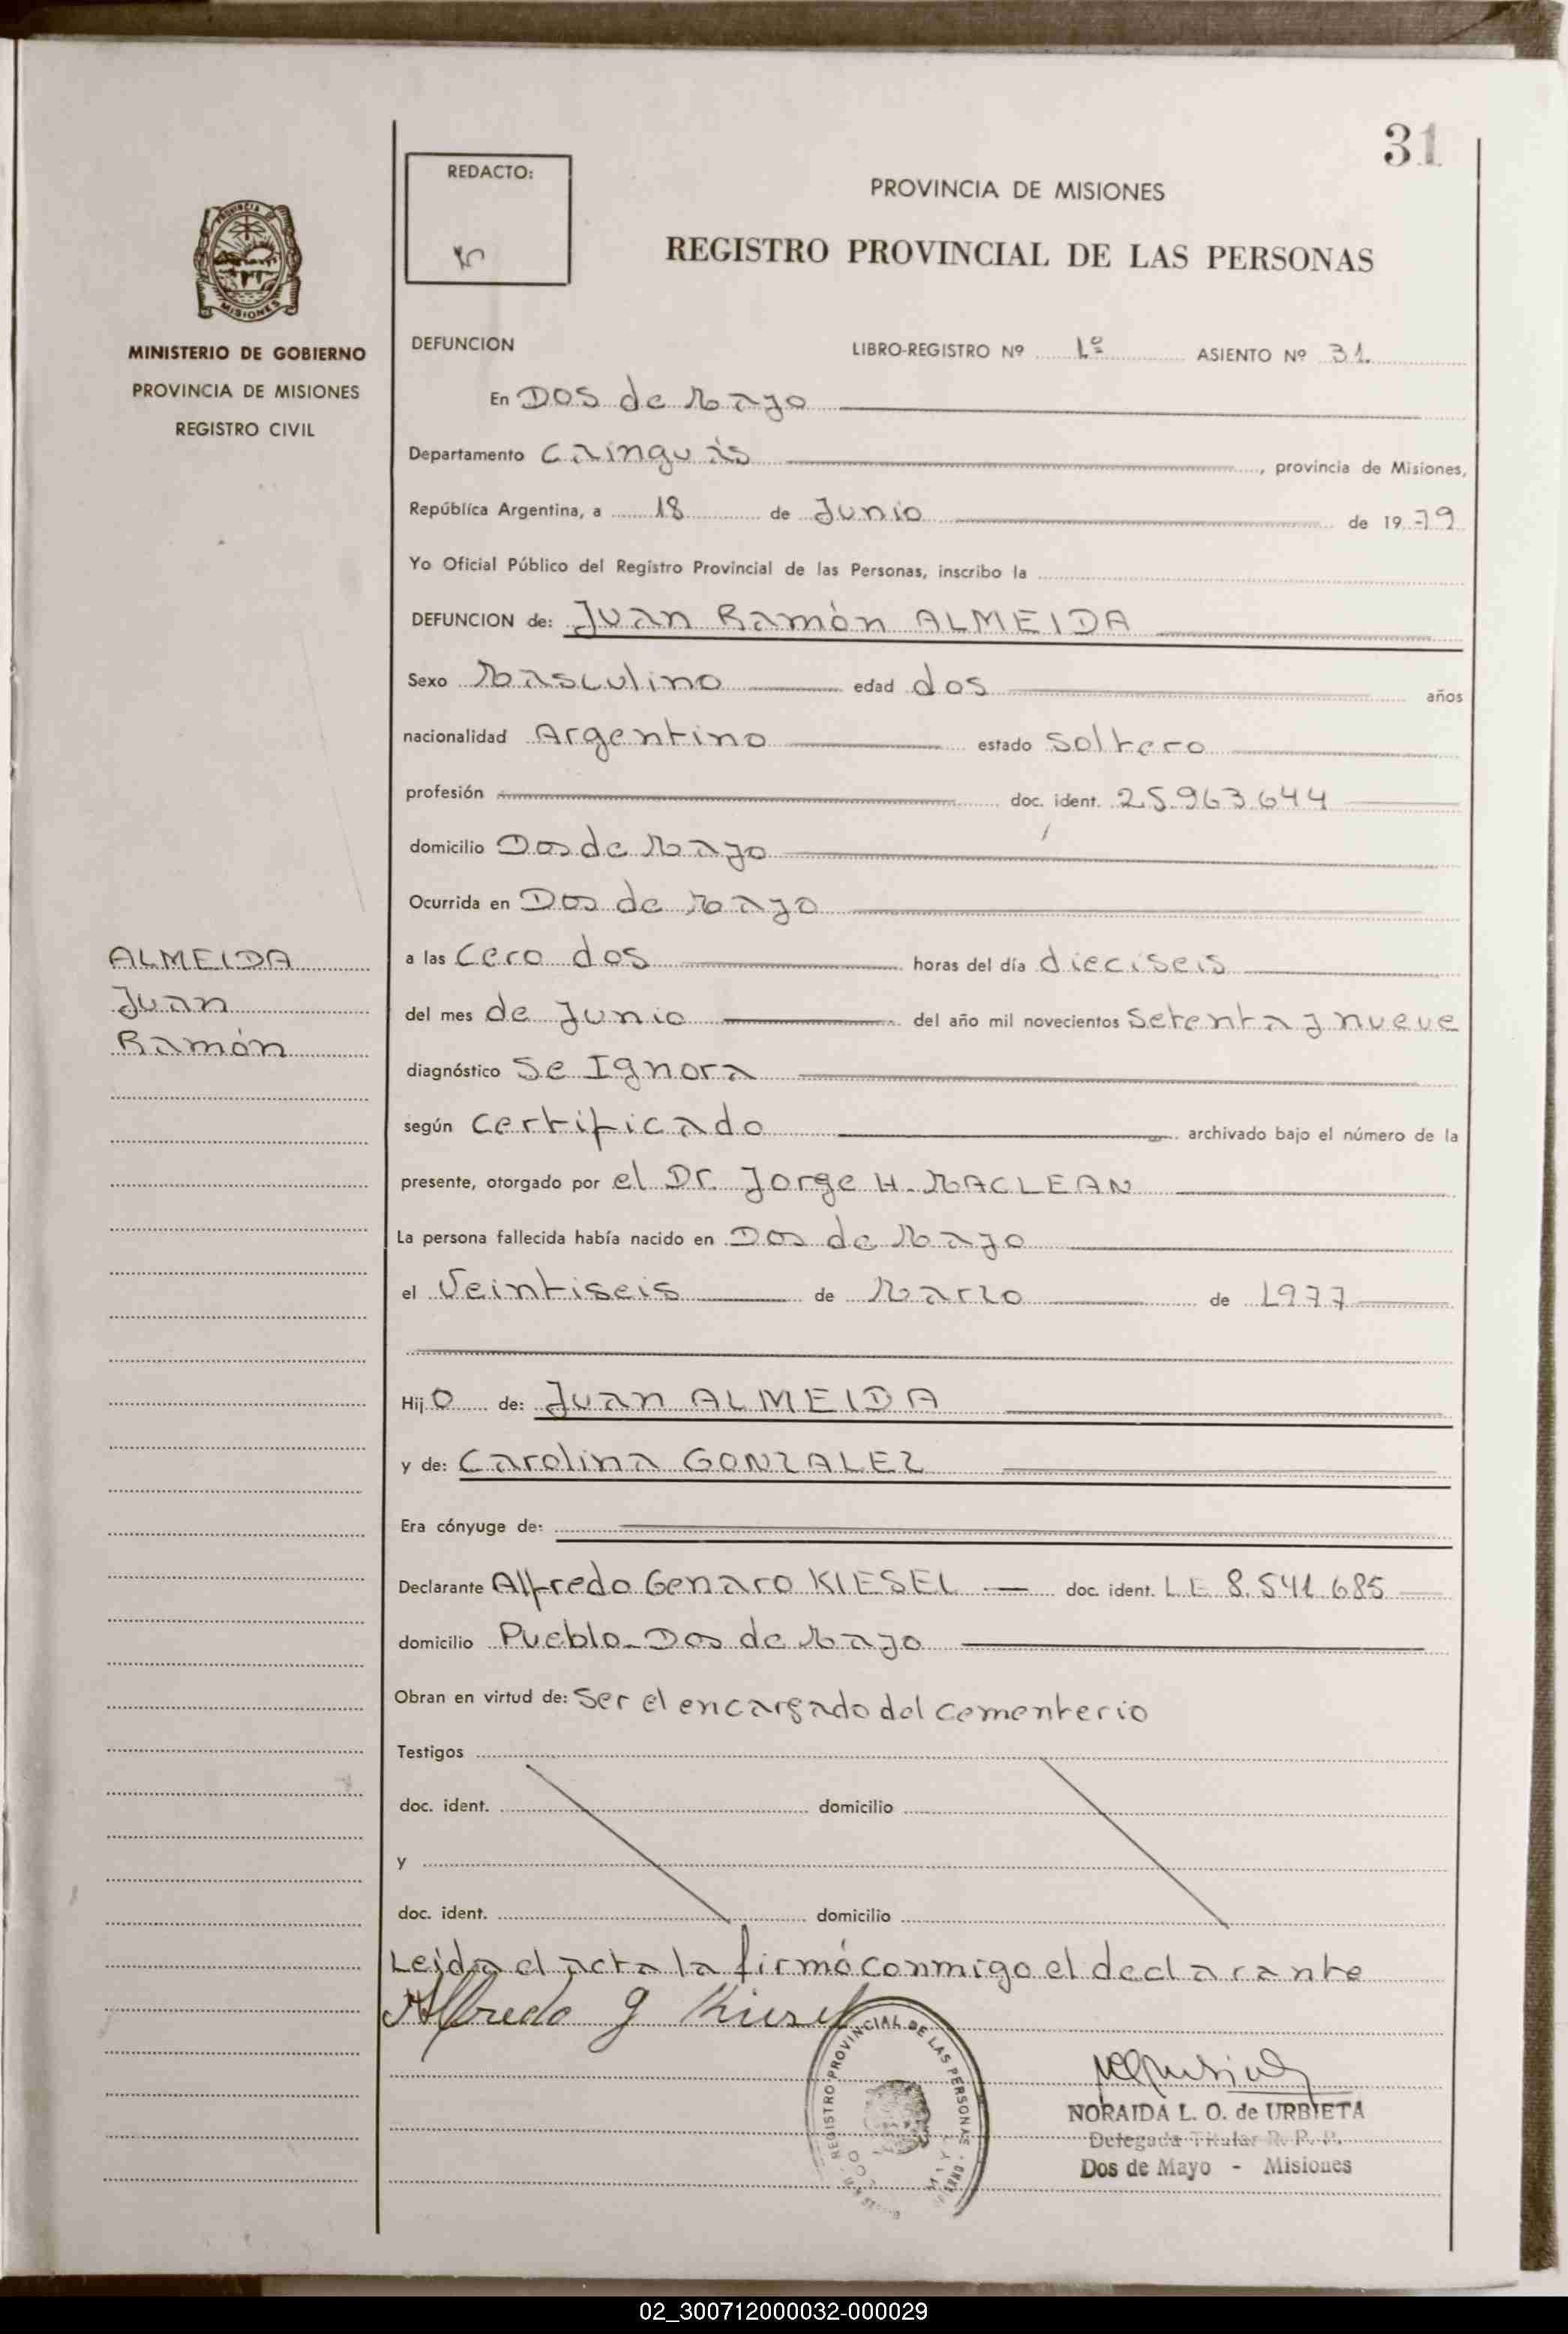 31
REDACTO:
PROVINCIA DE MISIONES
REGISTRO PROVINCIAL DE LAS PERSONAS
PROVINCIA DE
MISIONES
MINISTERIO DE GOBIERNO
PROVINCIA DE MISIONES
REGISTRO CIVIL
DEFUNCION LIBRO-REGISTRO Nº 1º ASIENTO Nº 31.
En DOS de Mayo
Departamento Cainguás, provincia de Misiones,
República Argentina, a 18 de Junio de 19 79
Yo Oficial Público del Registro Provincial de las Personas, inscribo la
DEFUNCION de: Juan Ramón ALMEIDA
Sexo Masculino edad dos años
nacionalidad Argentino estado Soltero
profesión doc. ident. 25.963.644
domicilio Dos de Mayo
Ocurrida en Dos de Mayo
a las Cero dos horas del día dieciseis
del mes de Junio del año mil novecientos Setenta y nueve
diagnóstico Se Ignora
según Certificado archivado bajo el número de la
presente, otorgado por el Dr. Jorge H. MACLEAN
La persona fallecida había nacido en Dos de Mayo
el Veintiseis de Marzo de 1977
Hijo de: Juan ALMEIDA
y de: Carolina GONZALEZ
Era cónyuge de:
Declarante Alfredo Genaro KIESEL doc. ident. L E 8.541.685
domicilio Pueblo Dos de Mayo
Obran en virtud de: Ser el encargado del cementerio
Testigos
doc. ident. domicilio
y
doc. ident. domicilio
Leida el acta la firmó conmigo el declarante
Alfredo G Kiesel
ALMEIDA
Juan
Ramón
REGISTRO PROVINCIAL DE LAS PERSONAS
NORAIDA L. O. de URBIETA
Delegada Titular R. P. P.
Dos de Mayo - Misiones
02_300712000032-000029